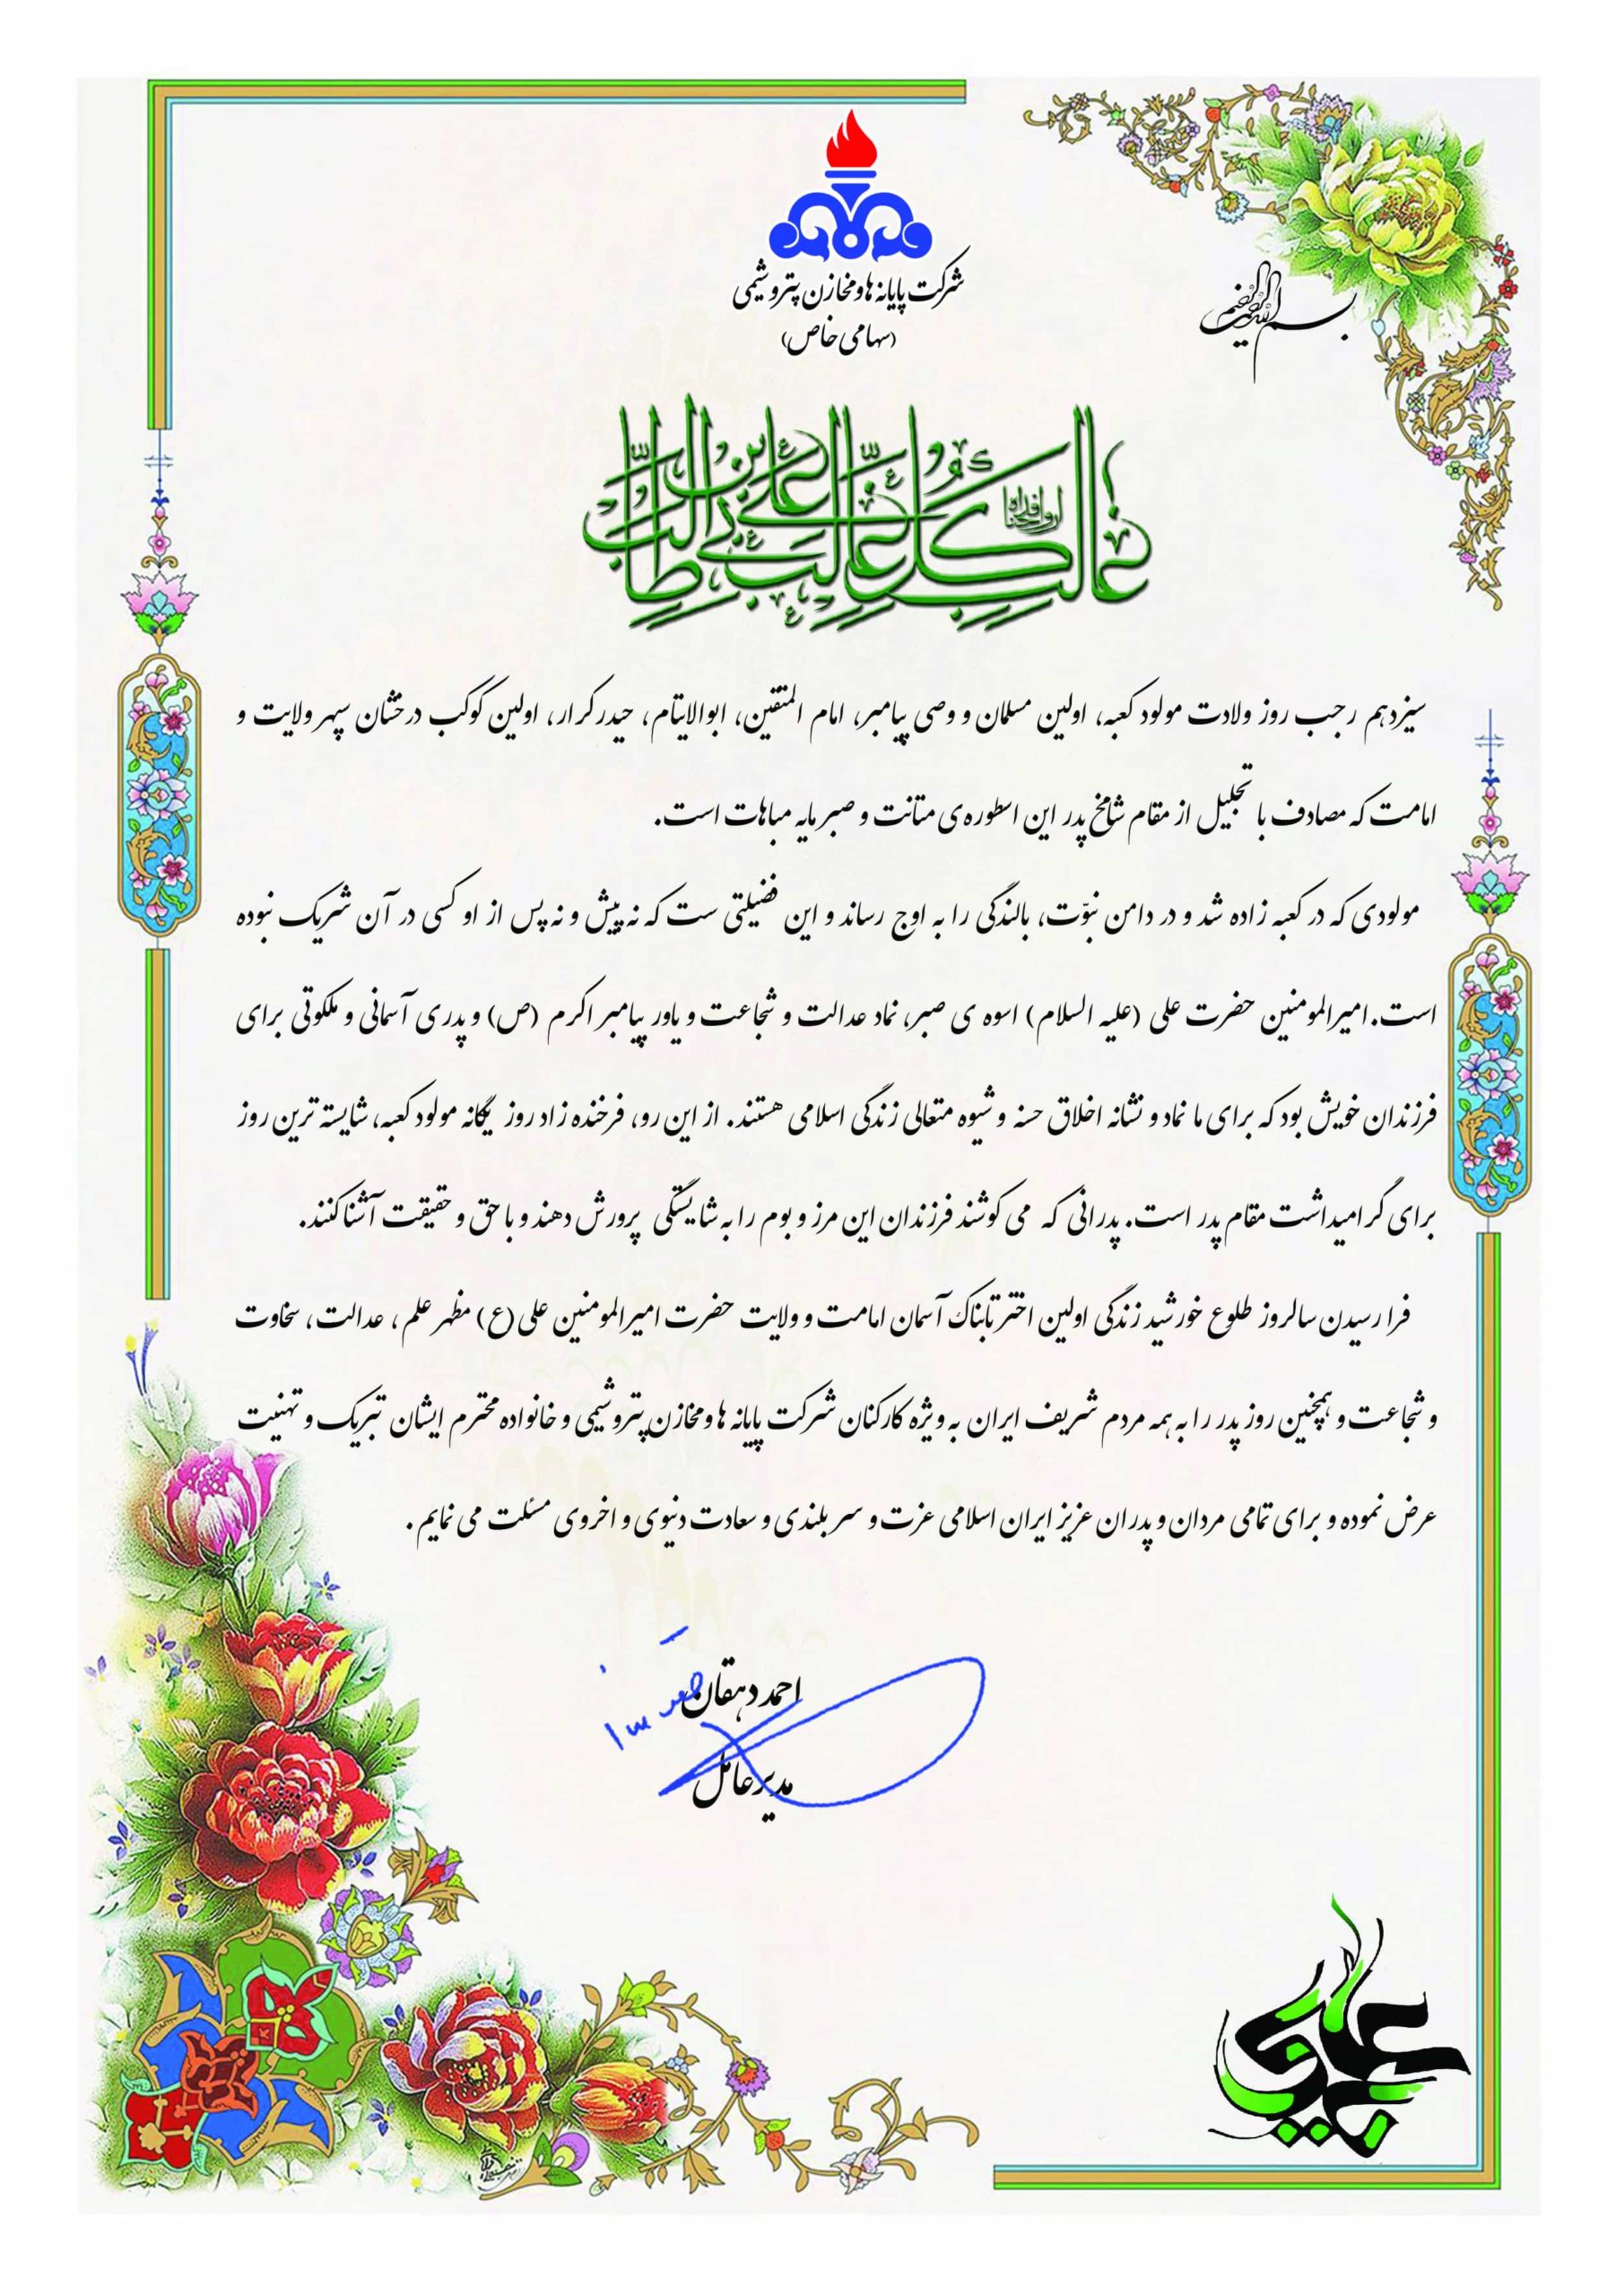 بسم الله الرحمن الرحیم
شرکت پایانه ها و مخازن پتروشیمی
(سهامی خاص)
غالب کل غالب علی ابن ابی طالب
سیزدهم رجب روز ولادت مولود کعبه، اولین مسلمان و وصی پیامبر، امام المتقین، ابوالایتام، حیدر کرار، اولین کوکب درخشان سپهر ولایت و
امامت که مصادف با تجلیل از مقام شامخ پدر این اسطوره ی متانت و صبر مایه مباهات است.
مولودی که در کعبه زاده شد و در دامن نبوّت، بالندگی را به اوج رساند و این فضیلتی ست که نه پیش و نه پس از او کسی در آن شریک نبوده
است. امیرالمومنین حضرت علی (علیه السلام) اسوه ی صبر، نماد عدالت و شجاعت و یاور پیامبر اکرم (ص) و پدری آسمانی و ملکوتی برای
فرزندان خویش بود که برای ما نماد و نشانه اخلاق حسنه و شیوه متعالی زندگی اسلامی هستند. از این رو، فرخنده زاد روز یگانه مولود کعبه، شایسته ترین روز
برای گرامیداشت مقام پدر است. پدرانی که می کوشند فرزندان این مرز و بوم را به شایستگی پرورش دهند و با حق و حقیقت آشنا کنند.
فرا رسیدن سالروز طلوع خورشید زندگی اولین اختر تابناک آسمان امامت و ولایت حضرت امیرالمومنین علی (ع) مظهر علم، عدالت، سخاوت
و شجاعت و همچنین روز پدر را به همه مردم شریف ایران به ویژه کارکنان شرکت پایانه ها و مخازن پتروشیمی و خانواده محترم ایشان تبریک و تهنیت
عرض نموده و برای تمامی مردان و پدران عزیز ایران اسلامی عزت و سربلندی و سعادت دنیوی و اخروی مسئلت می نمایم.
احمد دهقان
مدیرعامل